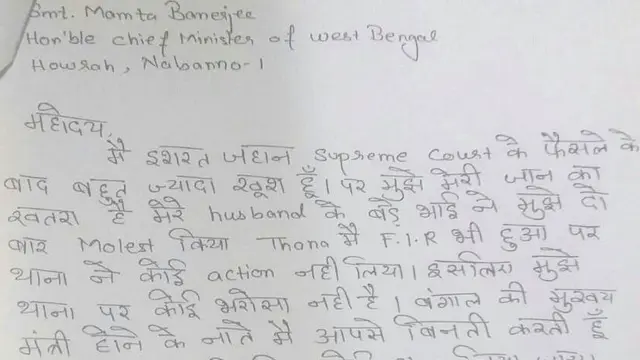 Smt. Mamta Banerjee
Hon'ble chief Minister of west Bengal
Howrah, Nabanno-1
महोदय,
मै इशरत जहान supreme court के फैसले के
बाद बहुत ज्यादा खुश हूँ। पर मुझे मेरी जान का
खतरा है मेरे husband के बड़े भाई ने मुझे दो
बार Molest किया Thana मै F.I.R भी हुआ पर
थाना ने कोई action नही लिया। इसलिए मुझे
थाना पर कोई भरोसा नही है। बंगाल की मुख्य
मंत्री होने के नाते मै आपसे विनती करती हूँ